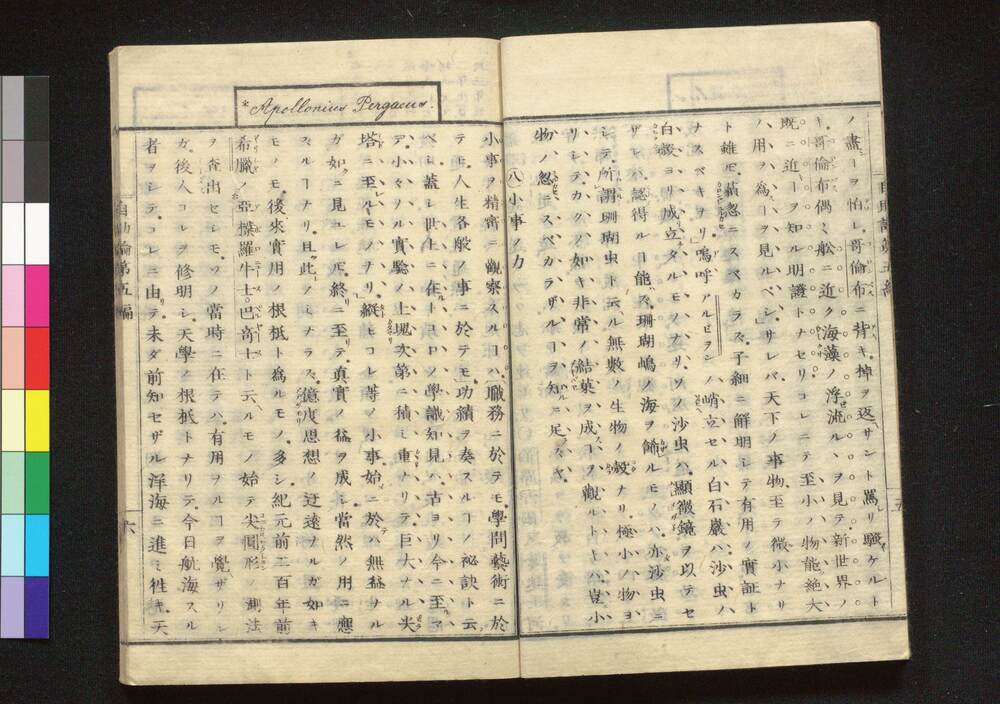 ノ盡ーヲ怕レ哥倫布ニ背キ掉ヲ返サント罵リ騒ケルト
キ哥倫布偶〻舩ニ近ク海藻ノ浮流ルヽヲ見テ新世界ノ
既ニ近ーヲ知ル明證トナセリコレニテ至小ノ物能絶大
ノ用ヲ為ーヲ見ルベシサレバ天下ノ事物至テ微小ナリ
ト雖モ藐忽ニスベカラス子細ニ鮮明シテ有用ノ實証ト
ナスベキヲリ嗚呼アルビヲンハ峭立セル白石巖ハ沙虫ノ
白殻ヨリ成立タルモノナリソノ沙虫ハ顯微鏡ヲ以テセ
ザレバ認得ルー能ハズ珊瑚嶋ノ海ヲ飾ルモノハ亦沙虫ニ
シテ所謂珊瑚虫ト云ル無數ノ生物ノ殻ナリ極小ノ物ヨ
リシテカクノ如キ非常ノ結菓ヲ成ーヲ觀ルトキハ豈小
物ハ忽ニスベカラザルーヲ知ニ足ラズヤ
㊇小事ノ力
*Apollonius Pergaeus.
小事ヲ精甯ニ觀察スルーハ職務ニ於テモ學問藝術ニ於
テモ人生各般ノ事ニ於テモ功績ヲ奏スルーノ祕訣ト云
ベシ蓋シ世上ニ在トコロノ學識知見ハ古ヨリ今ニ至マ
デ小々ナル實驗ノ上塊次第ニ積ミ重ナリテ巨大ナル尖
塔ニ至ルモノナリ縦ヒコレ等ノ小事始ニ於ハ無益ナル
ガ如クニ見ユレ𪜈終ニ至テ真實ノ益ヲ成シ當然ノ用ニ應
スルーナリ且此ノミナラス億度思想ノ迂遠ナルカ如キ
モノモ後來實用ノ根柢ト為ルモノ多シ紀元前二百年前
希臘ノ亞操羅牛士巴奇士ト云ルモノ始テ尖圓形ノ測法
ヲ查出セシモソノ當時ニ在テハ有用ヲルーヲ覺ザリシ
カ後人コレヲ修明シ天學ノ根柢トナリテ今日航海スル
者ヲシテコレニ由テ未ダ前知セザル洋海ニ進ミ徃キ天
自助論第五編
六